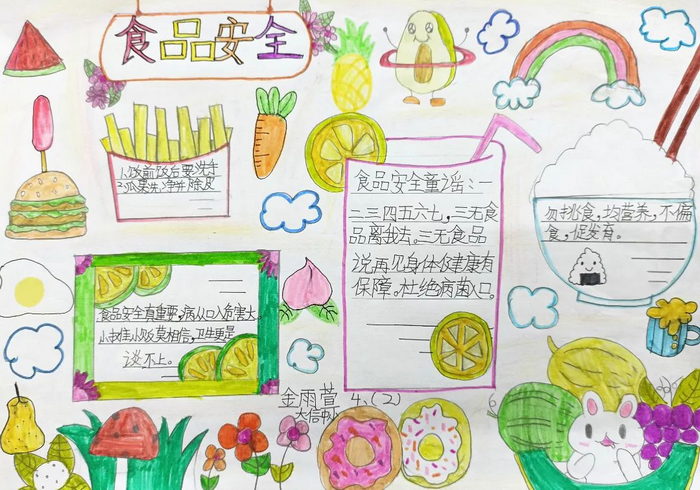 食品安全
1.饭前饭后要洗手
2.瓜果洗净并除皮
食品安全童谣:一
二三四五六七,三无食
品离我去。三无食品
说再见身体健康有
保障。杜绝病菌入口。
勿挑食,均营养,不偏
食,促发育。
食品安全真重要,病从口入危害大。
小摊小贩莫相信,卫生更是
谈不上。
金雨萱 4.(2)
大信中心